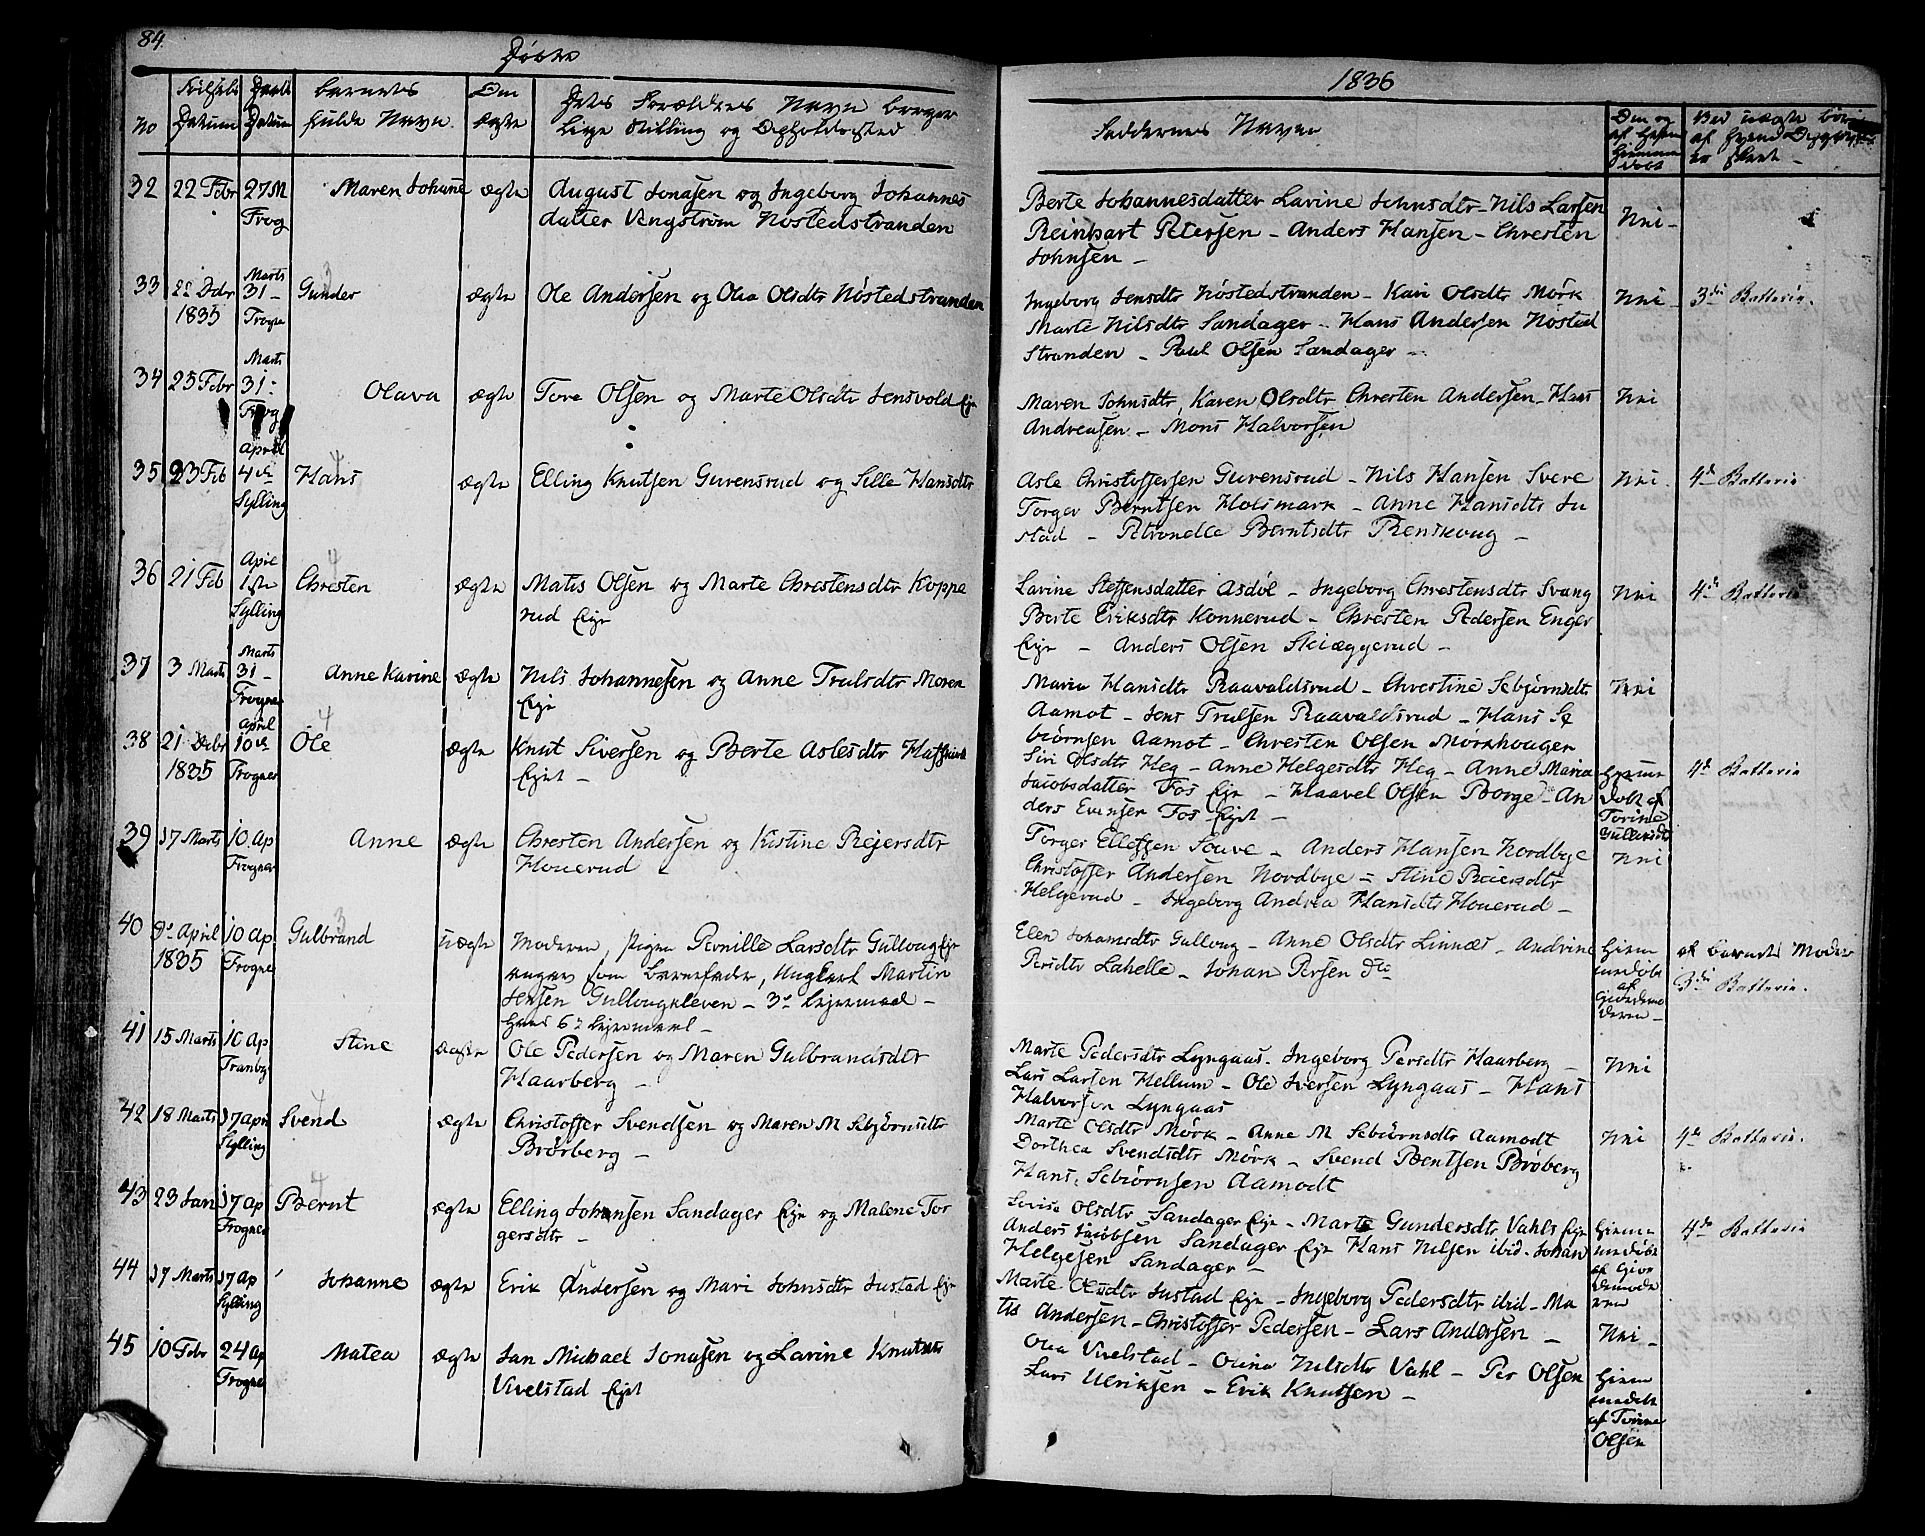 84
Døbte
1836
No
Fødsels Datum
Daabs Datum
Barnets fulde Navn
Om Ægte
Dets Forældres Navn borger
lige Stilling og Opholdssted
Faddernes Navne
32 22 Febr 27 M Frog Maren Johane ægte August Jonasen og Ingeborg Johannes
datter Vengstrøm Nøstedstranden
Berte Johannesdatter Lavine Johnsdtr - Nils Larsen Nei -
Reinhart Petersen - Anders Hansen - Chresten
Johnsen -
33 22 Dcbr 1835 Marts 31 - Frogner Gunder ægte Ole Andersen og Olea Olsdtr Nøstedstranden
Ingeborg Jensdtr Nøstedstranden - Kari Olsdtr Mørk Nei - 3die Batterie.
Marte Nilsdtr Sandager - Hans Andersen Nøsted
Stranden - Poul Olsen Sandager -
34 25 Febr Marts 31 - Frog Olava ægte Tore Olsen og Marte Olsdtr Jensvold Eje
Maren Johnsdtr, Karen Olsdtr Chresten Andersen - Hans Nei
Andreasen - Mons Halvorsen
35 23 Feb April 4de Sylling Hans 4 ægte Elling Knutsen Gurensrud og Sille Hansdtr
Asle Christoffersen Gurensrud - Nils Hansen Svere Nei 4de Batterie
Torger Berntsen Holsmark - Anne Hansdtr Ju
stad - Petronelle Berntsdtr Renskoug -
36 21 Feb April 1ste Sylling Chresten 4 ægte Matis Olsen og Marte Chrestensdtr Koppe
rud Eje
Lavine Steffensdatter Asdøl - Ingeborg Chrestensdtr Svang Nei 4de Batterie
Berte Eriksdtr Konnerud - Chresten Pedersen Enger
Eje - Anders Olsen Skiæggerud -
37 3 Marts Marts 31 - Frogner Anne Karine ægte Nils Johannesen og Anne Trulsdtr Moren
Eje
Maria Hansdtr Raavaldsrud - Chrestine Sebjørnsdtr Nei
Aamot - Jens Trulsen Raavaldsrud - Hans Se
biørnsen Aamot - Chresten Olsen Mørkhouger
38 21 Dcbr 1835 April 10de Frogner Ole 4 ægte Knut Siversen og Berte Aslesdtr
Ejet -
Siri Olsdtr Heg - Anne Helgesdtr Heg - Anne Maria Hjemme 4de Batterie
Jacobsdatter Fos Eje - Haavel Olsen Borge - An døbt af
ders Evensen Fos Ejet - Torine
39 17 Marts 10 Ap Frogner Anne ægte Chresten Andersen og Kistine Rejersdtr
Houerud
Torger Ellefsen Souve - Anders Hansen Nordbye Nei
Christoffer Andersen Nordbye - Stine Reiersdtr
Helgerud - Ingeborg Andrea Hansdtr Houerud -
40 April 1835 10 Ap Frogner Gulbrand 3 uægte Moderen, Pigen Pernille Larsdtr Gulloug Eje
angav som Barnefader, Ungkarl Martin
Jensen Gullougkleven - 3de Lejermaal -
Hans 6te Lejermaal -
Elen Johansdtr Gulloug - Anne Olsdtr Linnæs - Andrine Hjem af Barnets Moder
Persdtr Lahelle - Johan Persen do medøbt af 3die Batterie.
41 15 Marts 10 Ap Tranby Stine ægte Ole Pedersen og Maren Gulbrandsdtr
Haarberg -
Marte Pedersdtr Lyngaas - Ingeborg Persdtr Haarberg - Nei
Lars Larsen Hellum - Ole Iversen Lyngaas - Hans
Halvorsen Lyngaas
42 18 Marts 17 April Sylling Svend 4 ægte Christoffer Svendsen og Maren M Sebjørnsdtr
Brørberg -
Marte Olsdtr Mørk - Anne M Sebiørnsdtr Aamodt Nei 4de Batterie.
Dorthea Svendsdtr Mørk - Svend Bentsen Brøberg
Hans Sebiørnsen Aamodt
43 23 Jan 17 Ap Frogner Bernt 4 ægte Elling Johansen Sandager Eje og Malene Tor
gersdtr -
Olsdtr Sandager Eje - Marte Gundersdtr Vahls Eje Hjem 4de Batterie
Anders Jacobsen Sandager Eje Hans Nilsen ibid - Johan medøbt
Helgesen Sandager - af Giordemoderen
44 17 Marts 17 Ap Sylling Johanne ægte Erik Andersen og Mari Johnsdtr Justad Eje
Marte Olsdtr Justad Eje - Ingeborg Pedersdtr ibid - Ma
tis Andersen - Christoffer Pedersen - Lars Andersen - Nei -
45 10 Febr 24 Ap Frogner Matea ægte Jan Michael Jonasen og Lavine Knutsdtr
Vivelstad Ejet
Olea Vivelstad - Olina Nilsdtr Vahl - Per Olsen Hjem
Lars Ulriksen - Erik Knutsen - medøbt
af Torine
Olsen